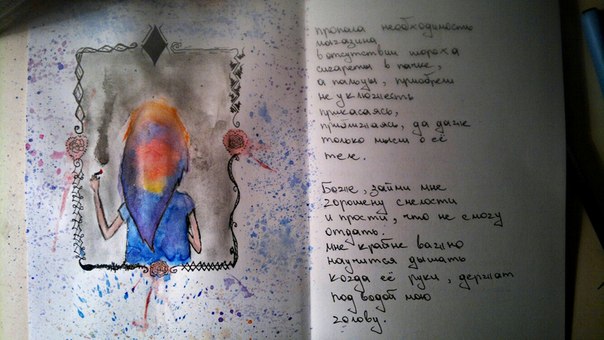 пропала необходимость
магазина
в отсутствии шороха
сигареты в пачке,
а пальцы, приобрели
неуклюжесть
прикасаясь,
прижимаясь, да даже
только мысли о её
теле.
Боже, займи мне
горошену смелости
и прости, что не смогу
отдать.
мне крайне важно
научится дышать
когда её руки, держат
под водой мою
голову.